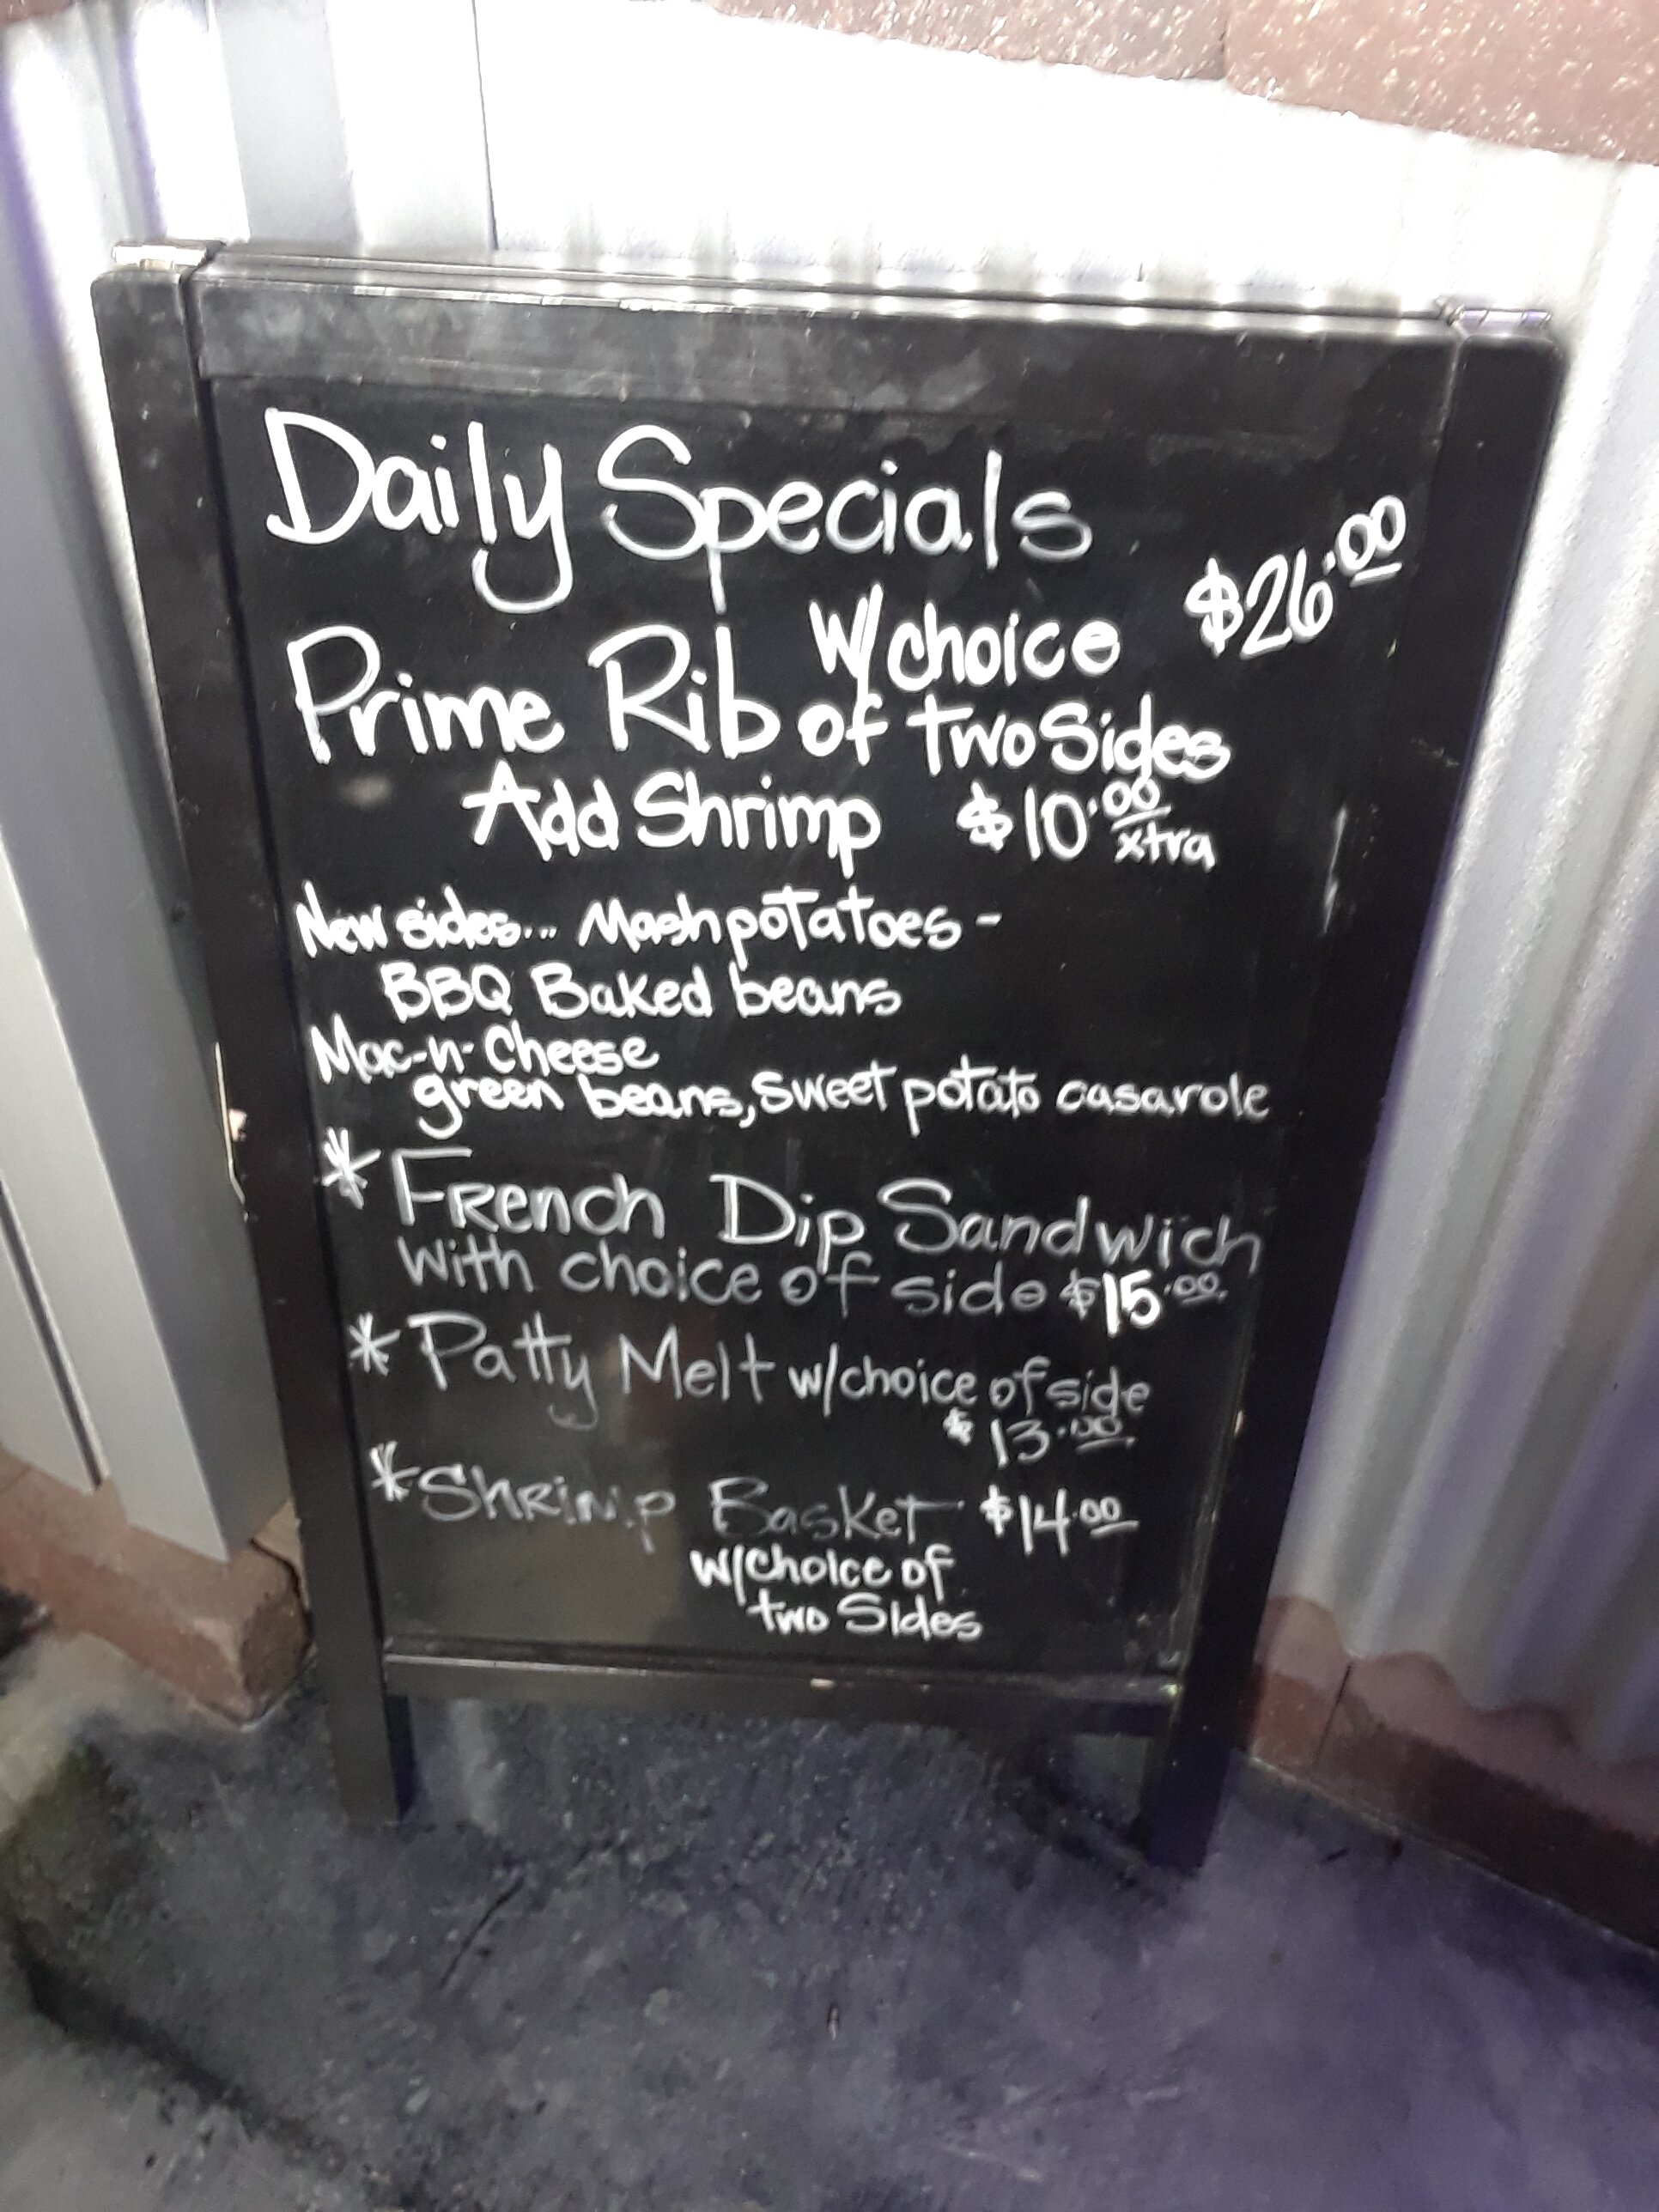 Daily Specials
$26.00
Prime Rib w/choice of two Sides
Add Shrimp $10.00 xtra
New sides... Mashpotatoes -
BBQ Baked beans
Mac-n-Cheese
green beans, sweet potato casarole
* French Dip Sandwich
with choice of side $15.00
* Patty Melt w/choice of side
$13.00
* Shrimp Basket $14.00
w/choice of
two Sides